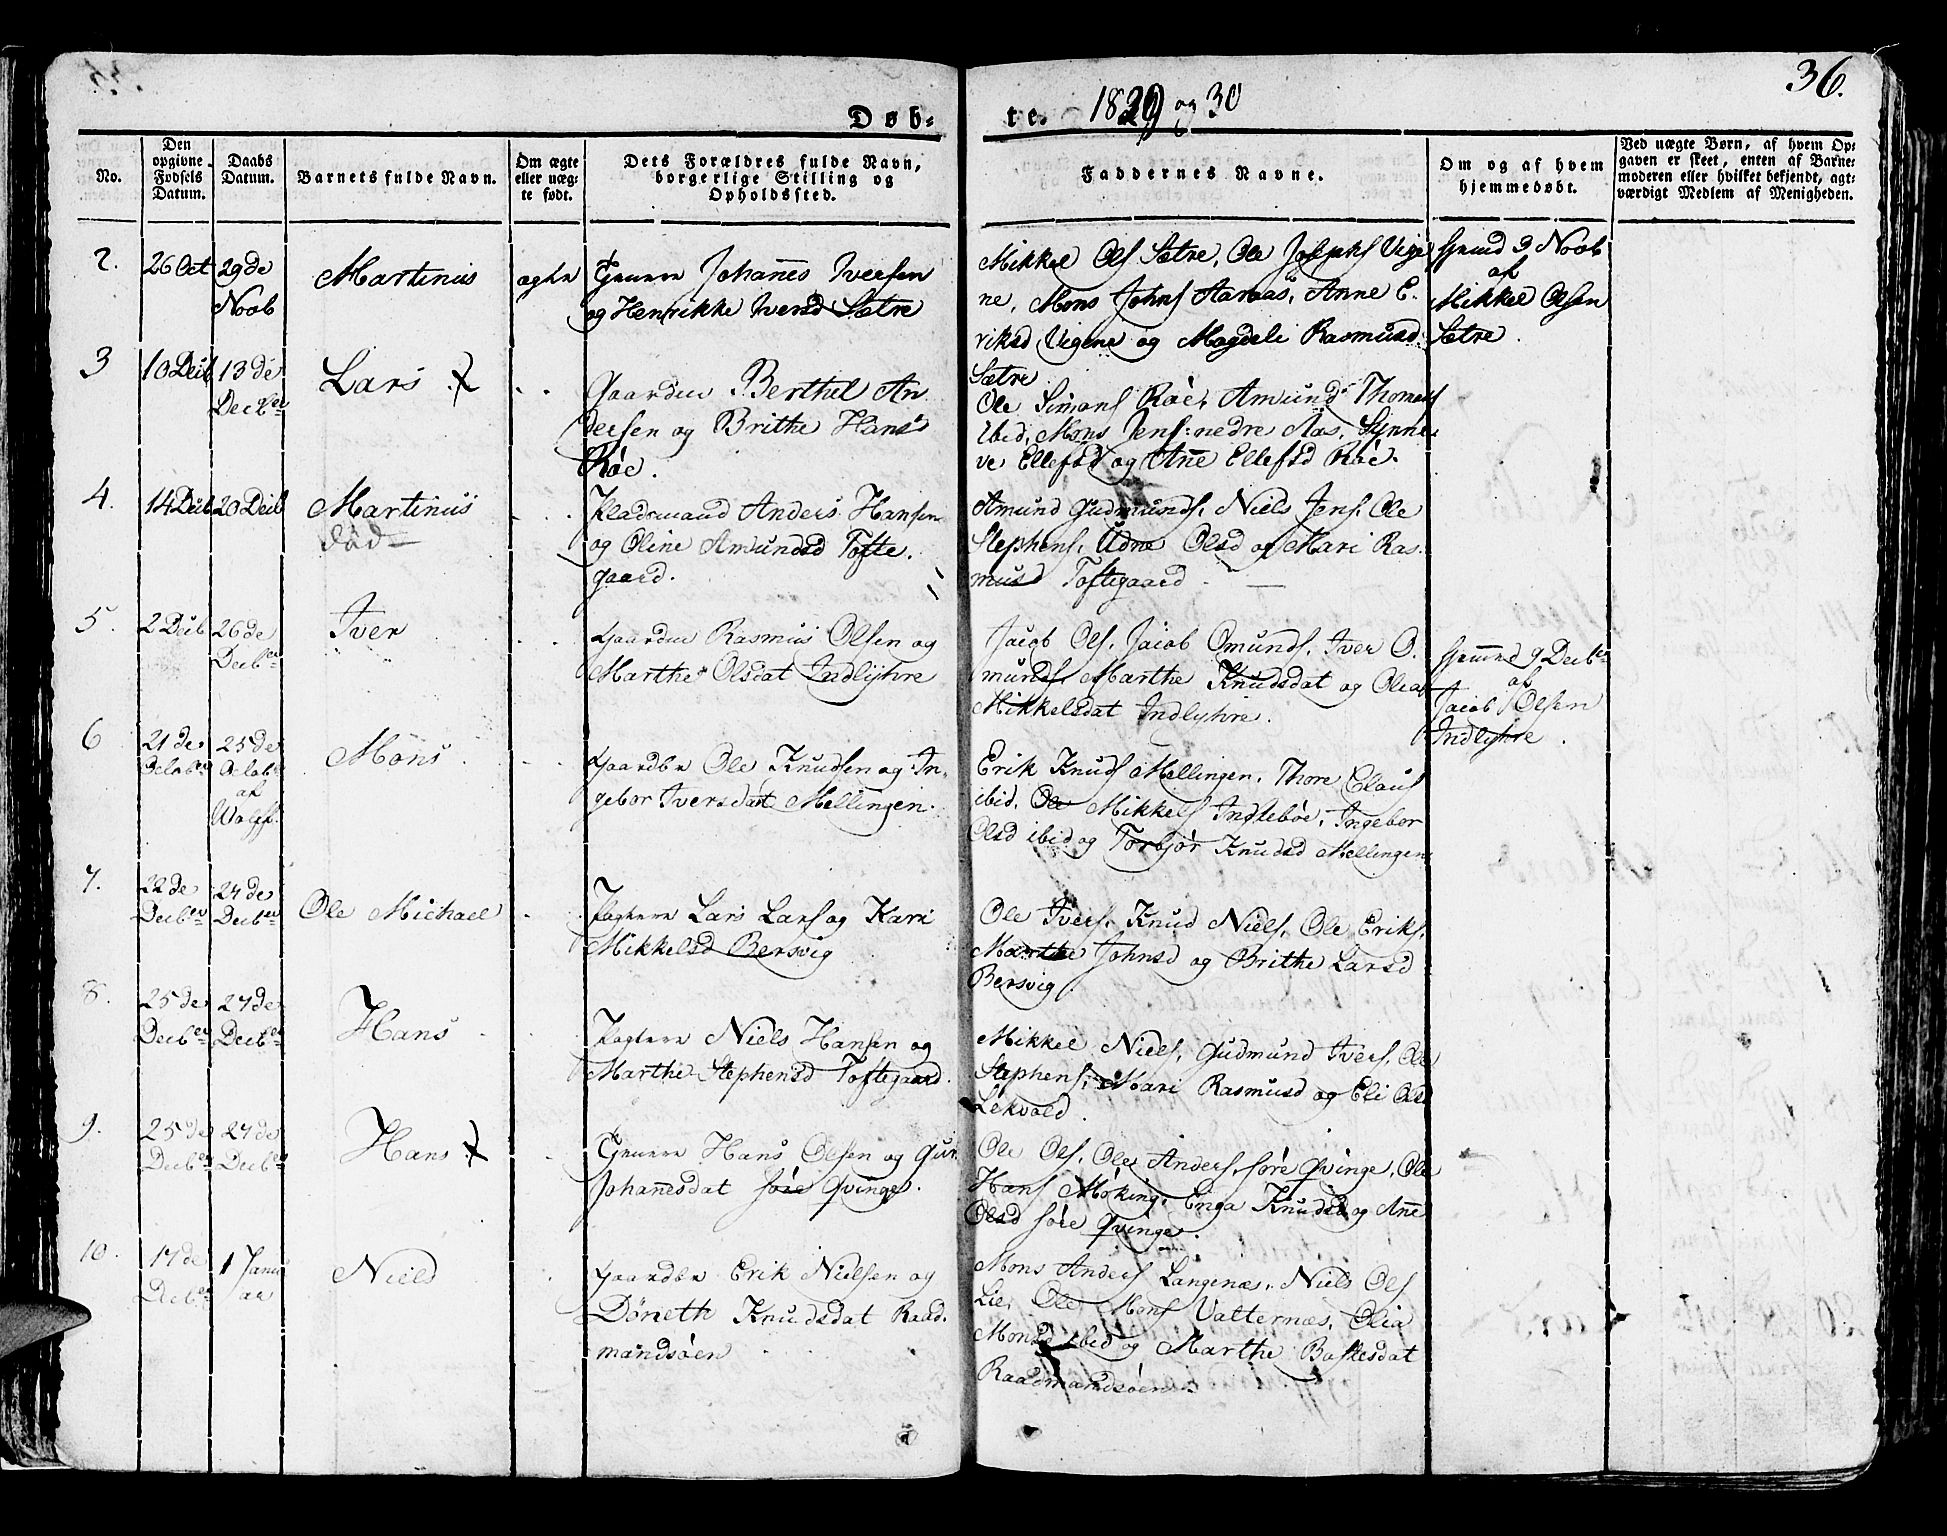 36.
Døb-
te. 1829 og 30
No.
Den
opgivne
Fødsels
Datum.
Daabs
Datum.
Barnets fulde Navn.
Om ægte
eller uæg-
te født.
Dets Forældres fulde Navn,
borgerlige Stilling og
Opholdssted.
Faddernes Navne.
Om og af hvem
hjemmedøbt.
Ved uægte Børn, af hvem Op-
gaven er skeet, enten af Barne-
moderen eller hvilket bekjendt, agt-
værdigt Medlem af Menigheden.
2.
26 Oct
29 de
Novb
Martinus
ægte
Johannes Iversen
og Henrikke Iversd Sætre
Mikkel Ols Sætre, Ole Josephs Vige
ne, Mons Johns Aaraas, Anne E.
riksd Vigene og Magdeli Rasmusd
Sætre
Novb
af
Mikkel Olsen
Sætre.
3
10 Decb
13 de
Decber
Lars X
Gaardm Berthel An
dersen og Brithe Hans
Røe.
Ole Simons Røe, Amund Thomas
ibid, Mons Jens nedre Aas, Synne
ve Ellefsd og Anne Ellefsd Røe.
4.
14 Decb
20 Decb
Martinus
død
Pladsmand Anders Hansen
og Oline Amundsd Tofte.
gaard.
Amund Gudmunds, Niels Jens, Ole
Stephens, Udne Olsd og Mari Ras.
musd Toftegaard
5.
2 Decb
26 de
Decber
Iver
Gaardm Rasmus Olsen og
Marthe Olsdat Indlyhre
Jacob Ols, Jacob Omunds, Iver O.
munds, Marthe Knudsdat og Olea
Mikkelsdat Indlyhre.
9 Decber
af
Jacob Olsen
Indlyhre.
6
21 de
Octob
25 de
Octob
af
Wolff.
Mons
Gaardbr Ole Knudsen og In.
gebor Iversdat Mellingen.
Erik Knuds Mellingen, Thore Claus
ibid, Ole Mikkels Indlebøe, Ingebor
Olsd ibid og Torbjør Knudsd Mellingen
7.
22 de
Decber
27 de
Decber
Ole Michael
Lars Lars og Kari
Mikkelsd Bersvig
Ole Ivers, Knud Niels, Ole Eriks,
Marthe Johnsd og Brithe Larsd
Bersvig.
8.
25 de
Decber
27 de
Decber
Hans
Niels Hansen og
Marthe Stephensd Toftegaard.
Mikkel Niels, Gudmund Ivers, Ole
Stephens, Mari Rasmusd og Eli Olsd
Lekvold.
9.
25 de
Decber
27 de
Decber
Hans X
Hans Olsen og Gur.
Johannesdat søre Qvinge.
Ole Ols, Ole Anders, søre Qvinge, Ole
Hans Møking, Knudsd og Anne
Olsd søre Qvinge.
10.
17 de
Decber
1 Janu
ar
Niels
Gaardbr Erik Nielsen og
Døreth Knudsdat Raad.
mandsøen
Mons Anders Langenæs, Niels Ols
Lie, Ole Mons Valternæs, Olia
Monsd ibid og Marthe Baltesdat
Raadmandsøen.